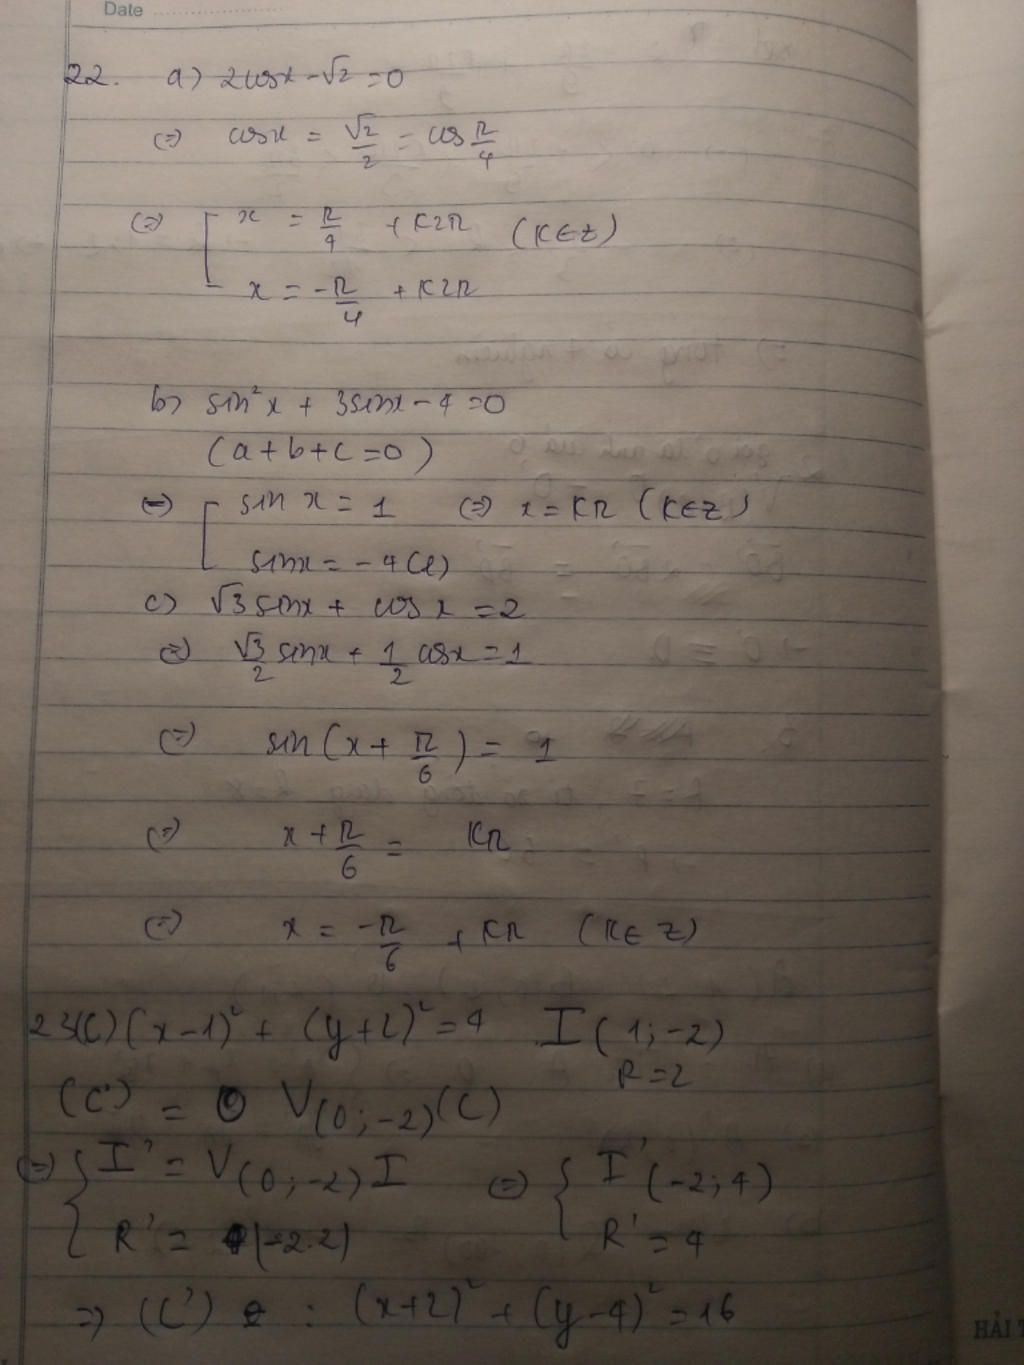 Date
22. a) 2cosx - √2 = 0
(=) cosx = √2/2 = cos π/4
(=) [ x = π/4 + K2π (K∈Z)
x = -π/4 + K2π
b) sin²x + 3sinx - 4 = 0
(a+b+c=0)
(=) [ sin x = 1 (=) x = Kπ (K∈Z)
sinx = -4(l)
c) √3 sinx + cos x = 2
(=) √3/2 sinx + 1/2 cosx = 1
(=) sin(x + π/6) = 1
(=) x + π/6 = Kπ
(=) x = -π/6 + Kπ (K∈Z)
23(C) (x-1)² + (y+2)² = 4 I(1;-2)
R=2
(C') = V(0;-2)(C)
(=) { I' = V(0;-2) I (=) { I'(-2;4)
R' = 4(=2.2) R' = 4
=> (C') : (x+2)² + (y-4)² = 16
HẢI T